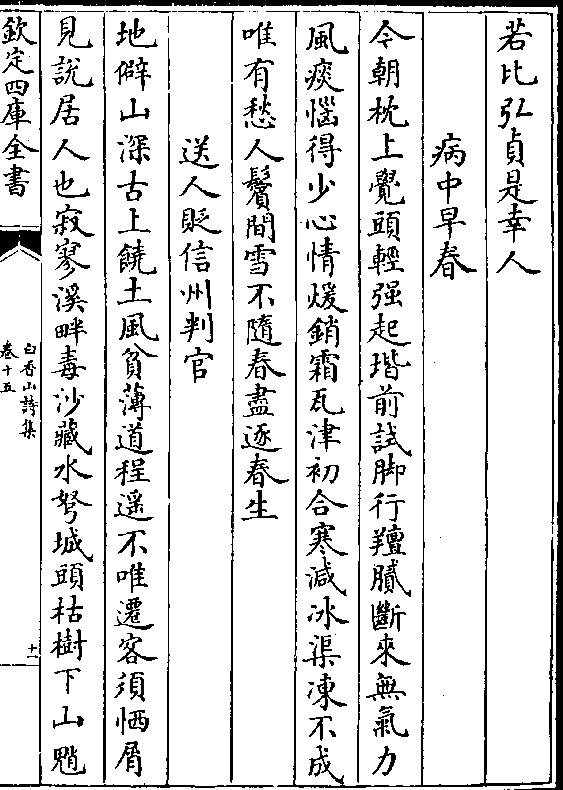 若比弘貞是幸人
病中早春
今朝枕上覺頭輕强起堦前試脚行羶膩斷來無氣力
風痰惱得少心情煖銷霜瓦津初合寒減冰渠凍不成
唯有愁人鬢間雪不隨春盡逐春生
送人貶信州判官
地僻山深古上饒土風貧薄道程遥不唯遷客須恓屑
見說居人也寂寥溪畔毒沙藏水弩城頭枯樹下山魈
欽定四庫全書
白香山詩集
卷十五
十一